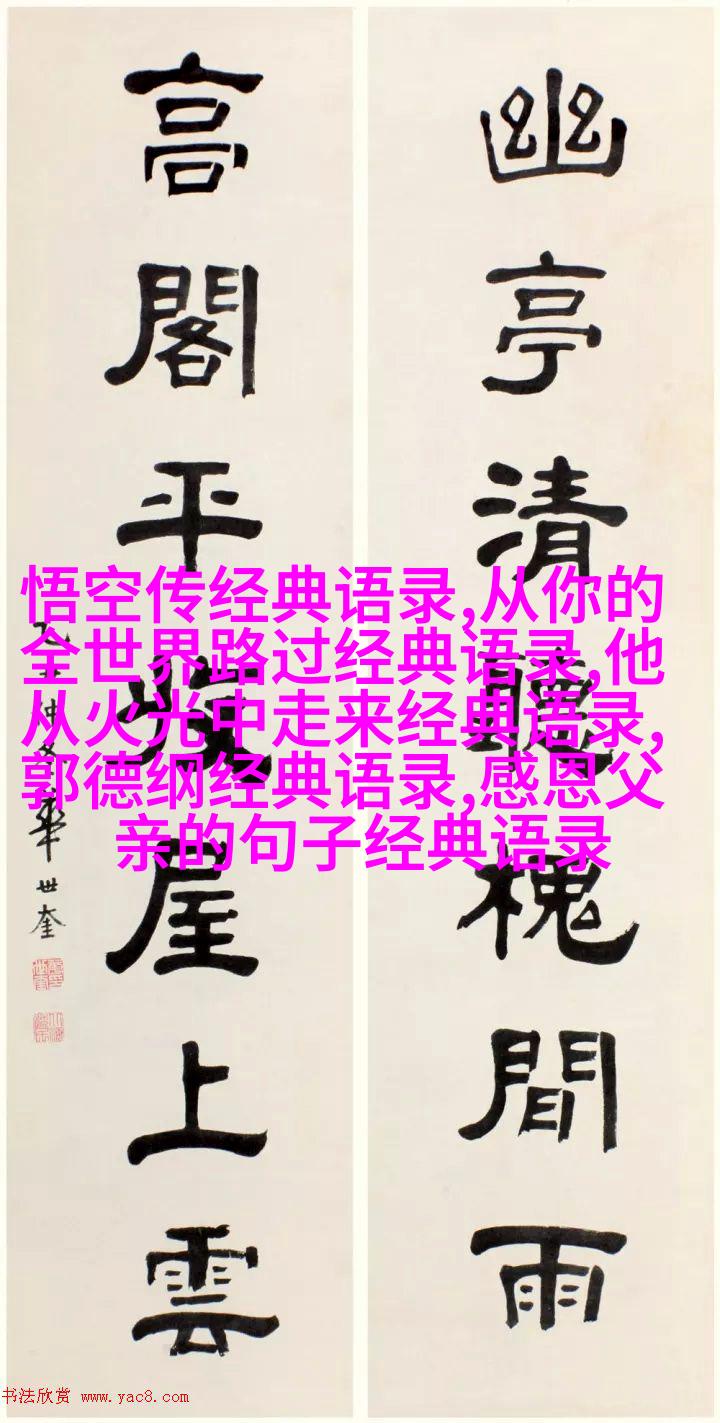 幽亭清聽槐間雨
高閣平收屋上雲
華世奎
悟空传经典语录,从你的
全世界路过经典语录,他
从火光中走来经典语录,
郭德纲经典语录,感恩父
亲的句子经典语录
书法欣赏 www.yac8.com